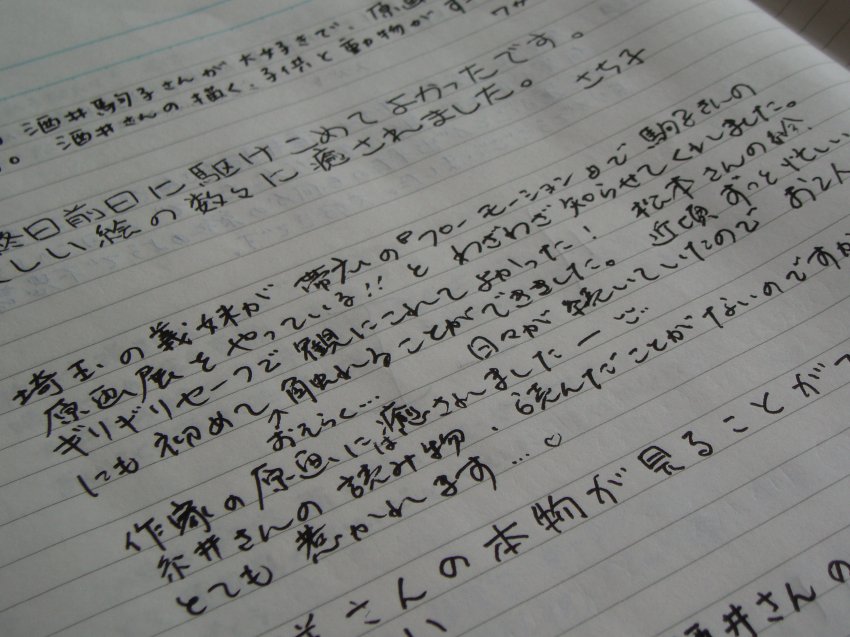 酒井駒子さんが大好きで、原画
。酒井さんの描く、子供と動物がす
終日前日に駆けこめてよかったです。
しい絵の数々に癒されました。 さち子
埼玉の義妹が 帯広の『フローモーション』で 駒子さんの
原画展をやっている!!と わざわざ知らせてくれました。
ギリギリセーフで観にこれてよかった! 松本さんの絵
にも初めて触れることができました。 近頃 ずっと忙しい
おそらく… 日々が続いていたので お2人
作家の原画には癒されましたー
糸井さんの読み物、読んだことがないのですが
とても惹かれます…♡
さんの本物が見ることが
い
酒井さんの